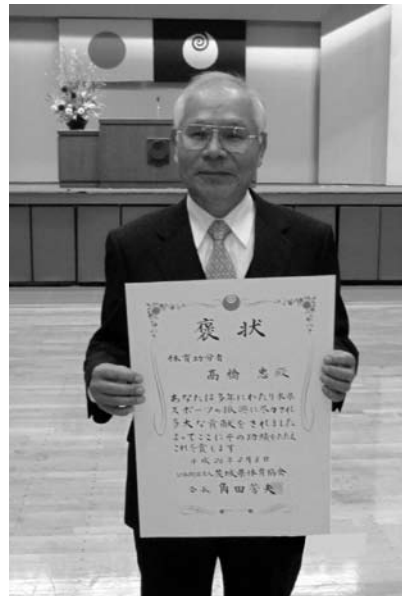 褒状
体育功労者
高橋 忠 殿
あなたは多年にわたり本県
スポーツの振興に尽力され
多大な貢献をされました
よってここにその功績をたたえ
これを賞します
平成 年 月 日
茨城県体育協会
会長 角田芳夫